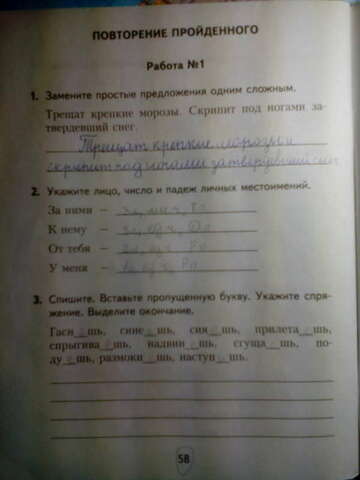 ПОВТОРЕНИЕ ПРОЙДЕННОГО
Работа №1
1. Замените простые предложения одним сложным.
Трещат крепкие морозы. Скрипит под ногами за-
твердевший снег.
Трещат крепкие морозы и
скрипит под ногами затвердевший снег
2. Укажите лицо, число и падеж личных местоимений.
За ними –
К нему –
От тебя –
У меня –
3. Спишите. Вставьте пропущенную букву. Укажите спря-
жение. Выделите окончание.
Гаси_шь, сине_шь, сия_шь, прилета_шь,
спрыгива_шь, надвин_шь, сгуща_шь, по-
ду_шь, размокн_шь, наступ_шь.
58